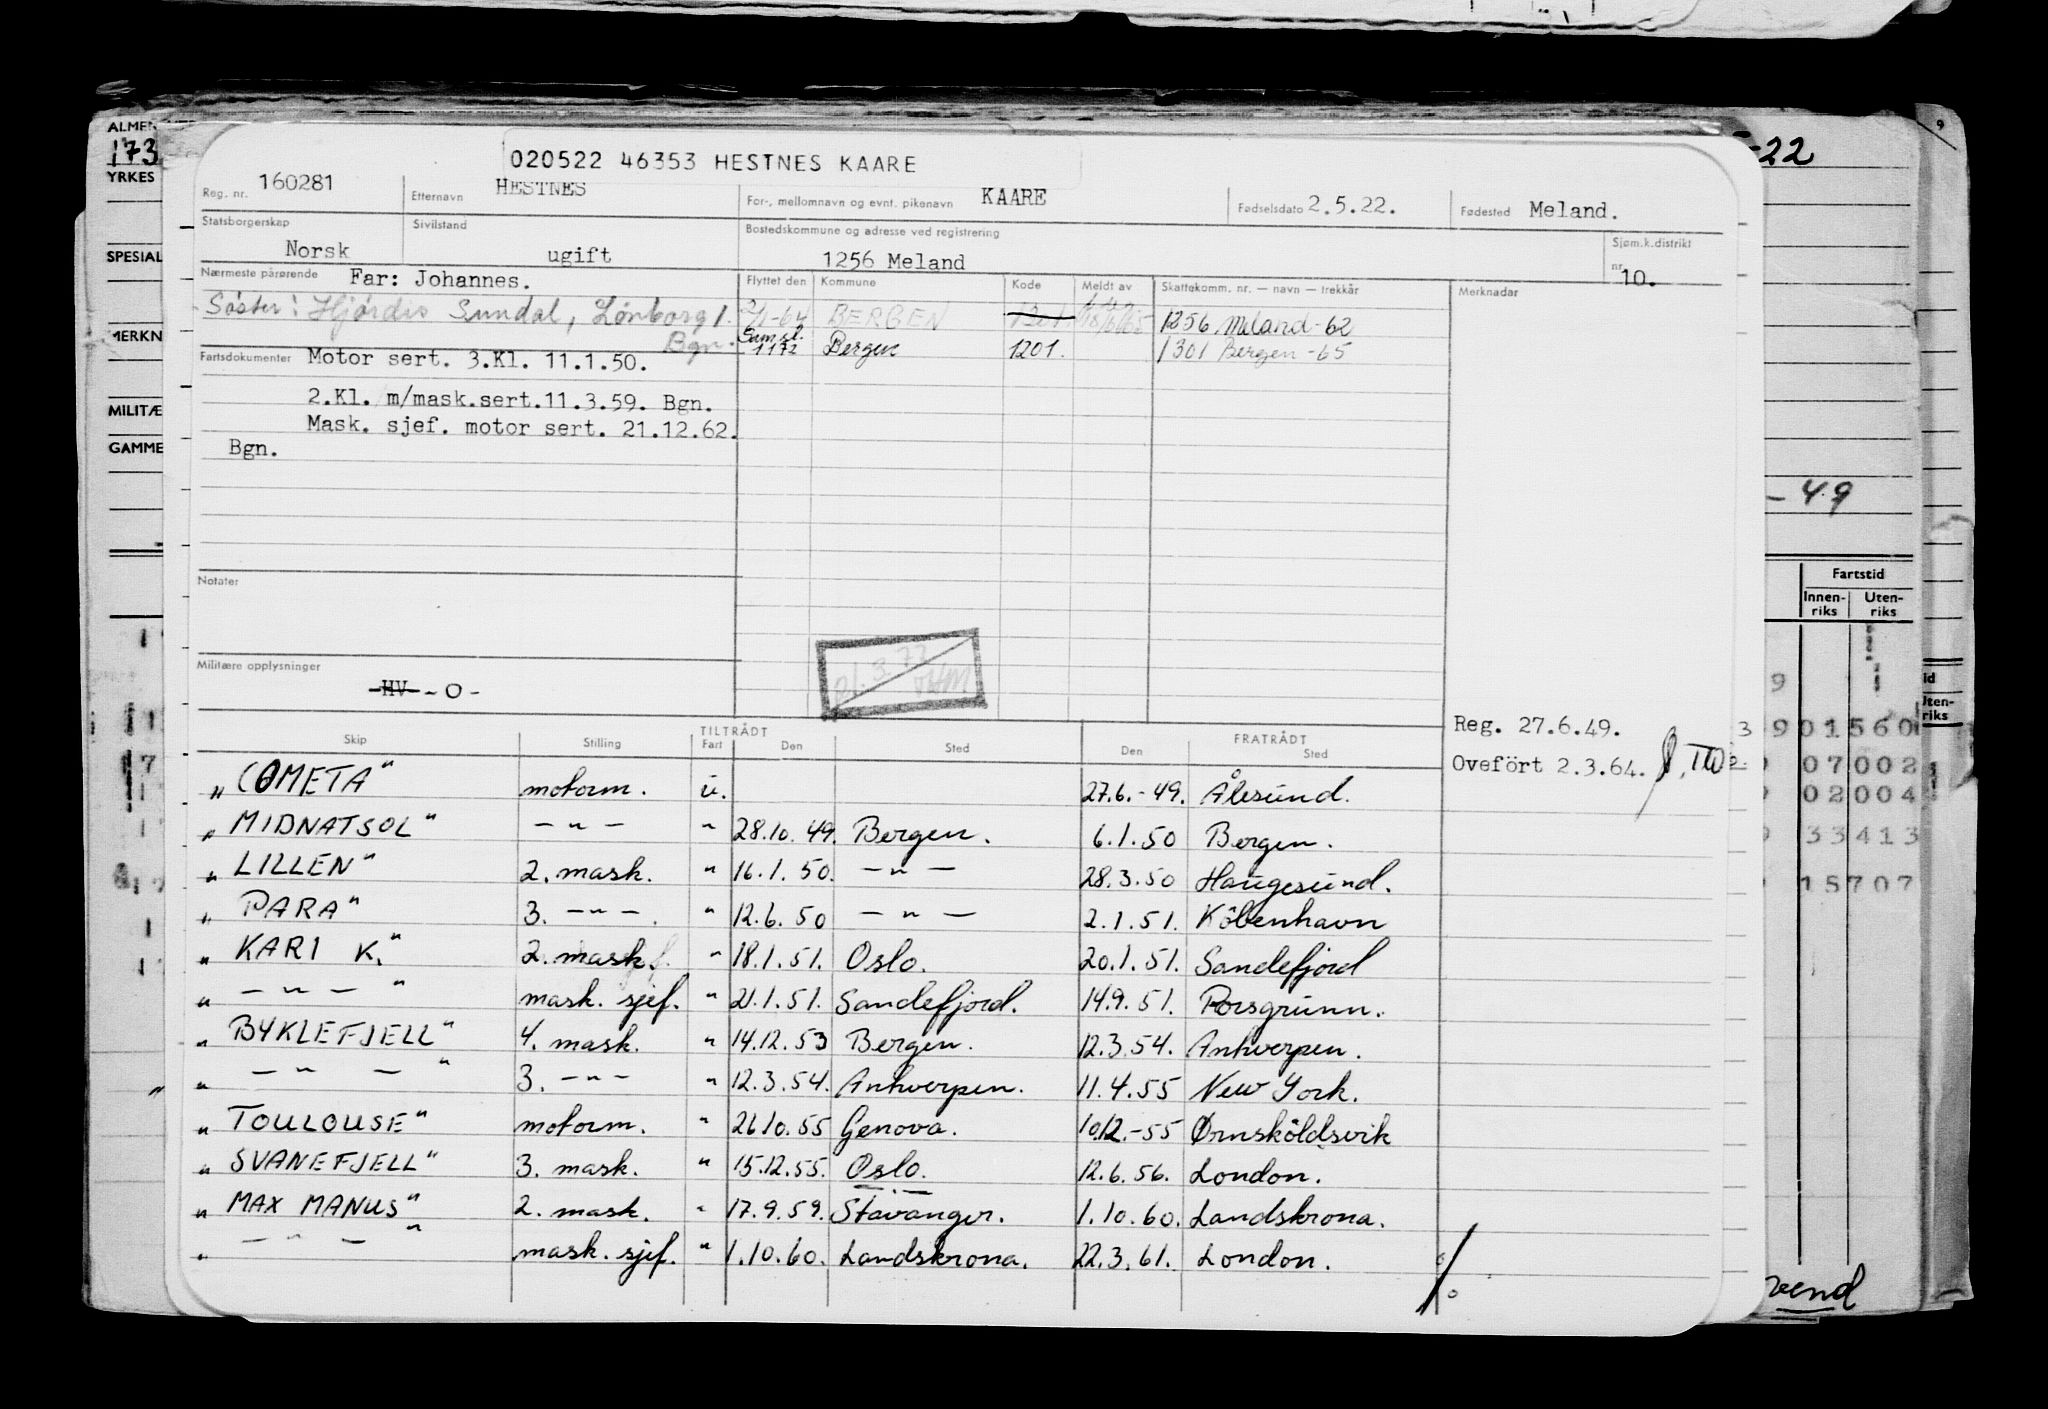 020522 46353 HESTNES KAARE
Reg. nr. 160281 Etternavn HESTNES For-, mellomnavn og evnt. pikenavn KAARE Fødselsdato 2.5.22. Fødested Meland.
Statsborgerskap Norsk Sivilstand ugift Bostedskommune og adresse ved registrering 1256 Meland Sjøm.k.distrikt nr. 10.
Nærmeste pårørende Far: Johannes. Flyttet den Kommune Kode Meldt av Skattekomm. nr. — navn — trekkår Merknader
Søster: Hjørdis Sundal, Lønborg 1. BERGEN 1301 1256 Meland-62
Bgn. Saml. 1172 Bergen 1201. 1301 Bergen -65
Fartsdokumenter Motor sert. 3.Kl. 11.1.50.
2.Kl. m/mask.sert.11.3.59. Bgn.
Mask. sjef. motor sert. 21.12.62.
Bgn.
Notater
Militære opplysninger
-HV- -O-
Reg. 27.6.49.
Ovefört 2.3.64.
TILTRÅDT FRATRÅDT
Skip Stilling Fart Den Sted Den Sted
„ COMETA" motorm. u. 27.6.-49. Ålesund.
„ MIDNATSOL" — " — " 28.10.49. Bergen. 6.1.50 Bergen.
„ LILLEN" 2. mask. " 16.1.50. — " — 28.3.50 Haugesund.
„ PARA" 3. — " —. " 12.6.50 — " — 2.1.51. Köbenhavn
„ KARI K." 2. mask. " 18.1.51. Oslo. 20.1.51. Sandefjord
„ — " — " mask. sjef. " 21.1.51. Sandefjord. 14.9.51. Porsgrunn.
„ BYKLEFJELL" 4. mask. " 14.12.53 Bergen. 12.3.54. Antwerpen.
„ — " — " 3. — " — " 12.3.54. Antwerpen. 11.4.55 New York.
„ TOULOUSE" motorm. " 26.10.55 Genova. 10.12.-55 Ørnsköldsvik
„ SVANEFJELL" 3. mask. " 15.12.55. Oslo. 12.6.56. London.
„ MAX MANUS" 2. mask. " 17.9.59. Stavanger. 1.10.60. Landskrona.
„ — " — " mask. sjef. " 1.10.60. Landskrona. 22.3.61. London.
173
YRKES
SPESIAL
MERKN
MILITÆ
GAMME
-22
-49
Fartstid
Innen-riks Uten-riks
901560
07002
02004
33413
15707
vend